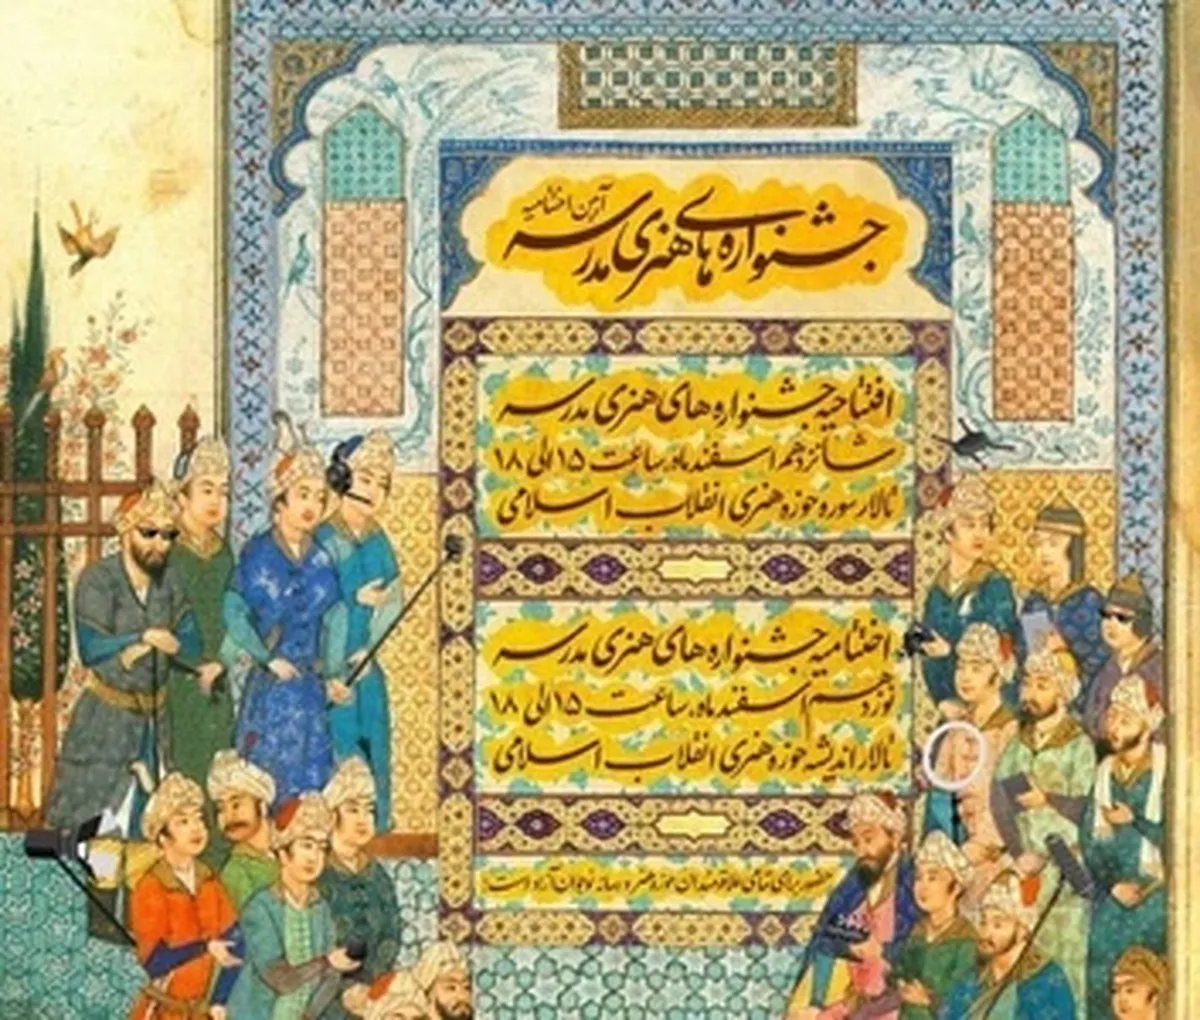 آیین اختتامیه
جشنواره‌های هنری مدرسه
افتتاحیه جشنواره های هنری مدرسه
شانزدهم اسفند ماه، ساعت ۱۵ الی ۱۸
تالار سوره حوزه هنری انقلاب اسلامی
اختتامیه جشنواره های هنری مدرسه
نوزدهم اسفند ماه، ساعت ۱۵ الی ۱۸
تالار اندیشه حوزه هنری انقلاب اسلامی
حضور برای تمامی علاقه‌مندان حوزه هنر و رسانه نوجوان آزاد است